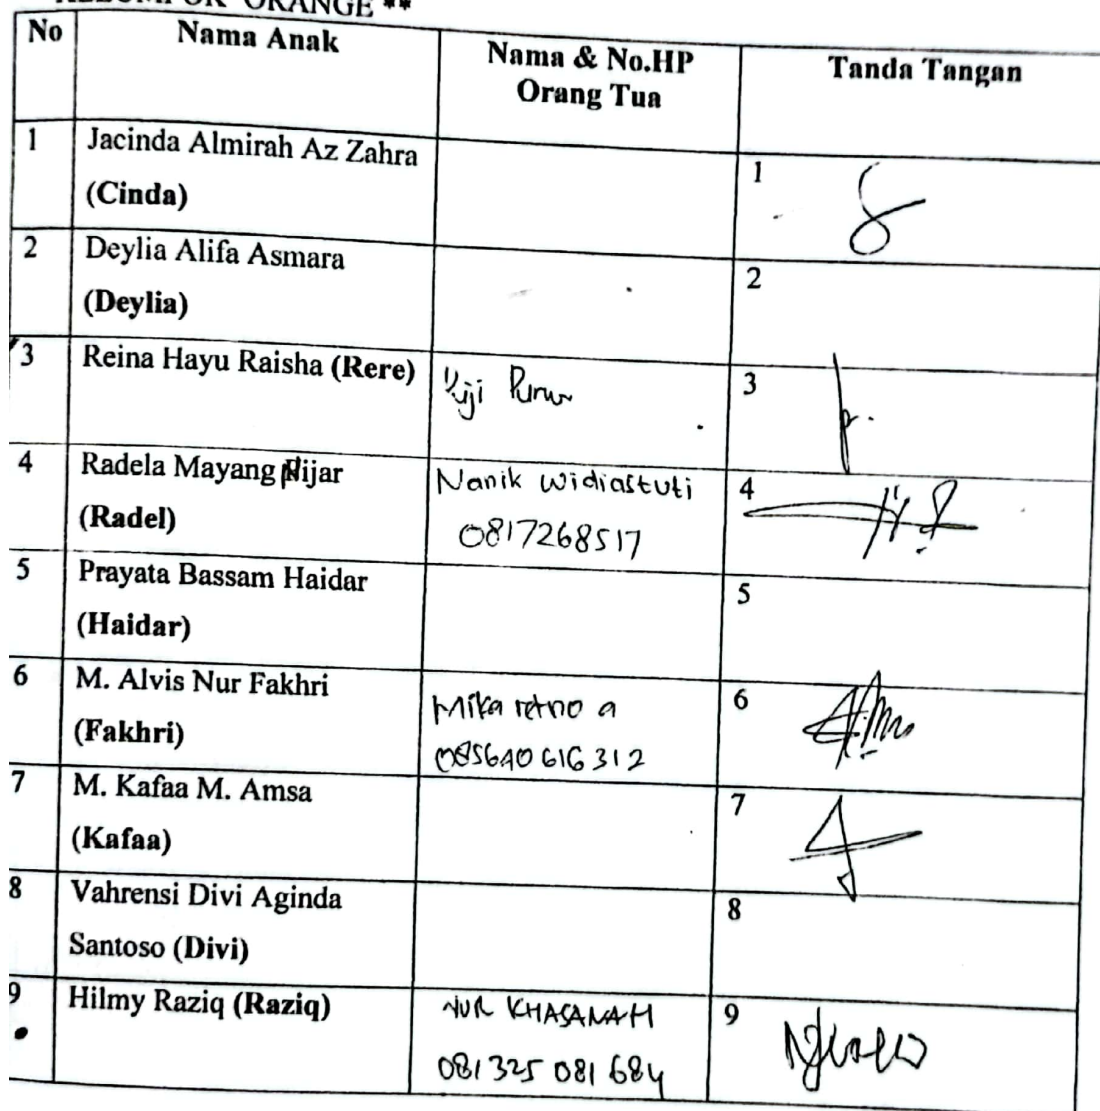 ORANGE **
No
Nama Anak
Nama & No.HP
Orang Tua
Tanda Tangan
1
Jacinda Almirah Az Zahra
(Cinda)
1
2
Deylia Alifa Asmara
(Deylia)
2
3
Reina Hayu Raisha (Rere)
3
4
Radela Mayang Nijar
(Radel)
Nanik Widiastuti
0817268517
4
5
Prayata Bassam Haidar
(Haidar)
5
6
M. Alvis Nur Fakhri
(Fakhri)
Mika retno a
085640616312
6
7
M. Kafaa M. Amsa
(Kafaa)
7
8
Vahrensi Divi Aginda
Santoso (Divi)
8
9
Hilmy Raziq (Raziq)
NUR KHASANAH
081 325 081 684
9